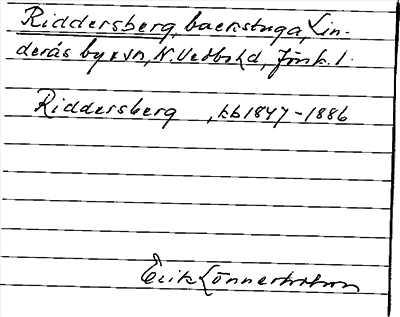 Riddersberg, backstuga, Lin-
derås by o sn, N. Vedbo hd, Jönk. l.
Riddersberg , kb 1847-1886
Erik Lönnerholm